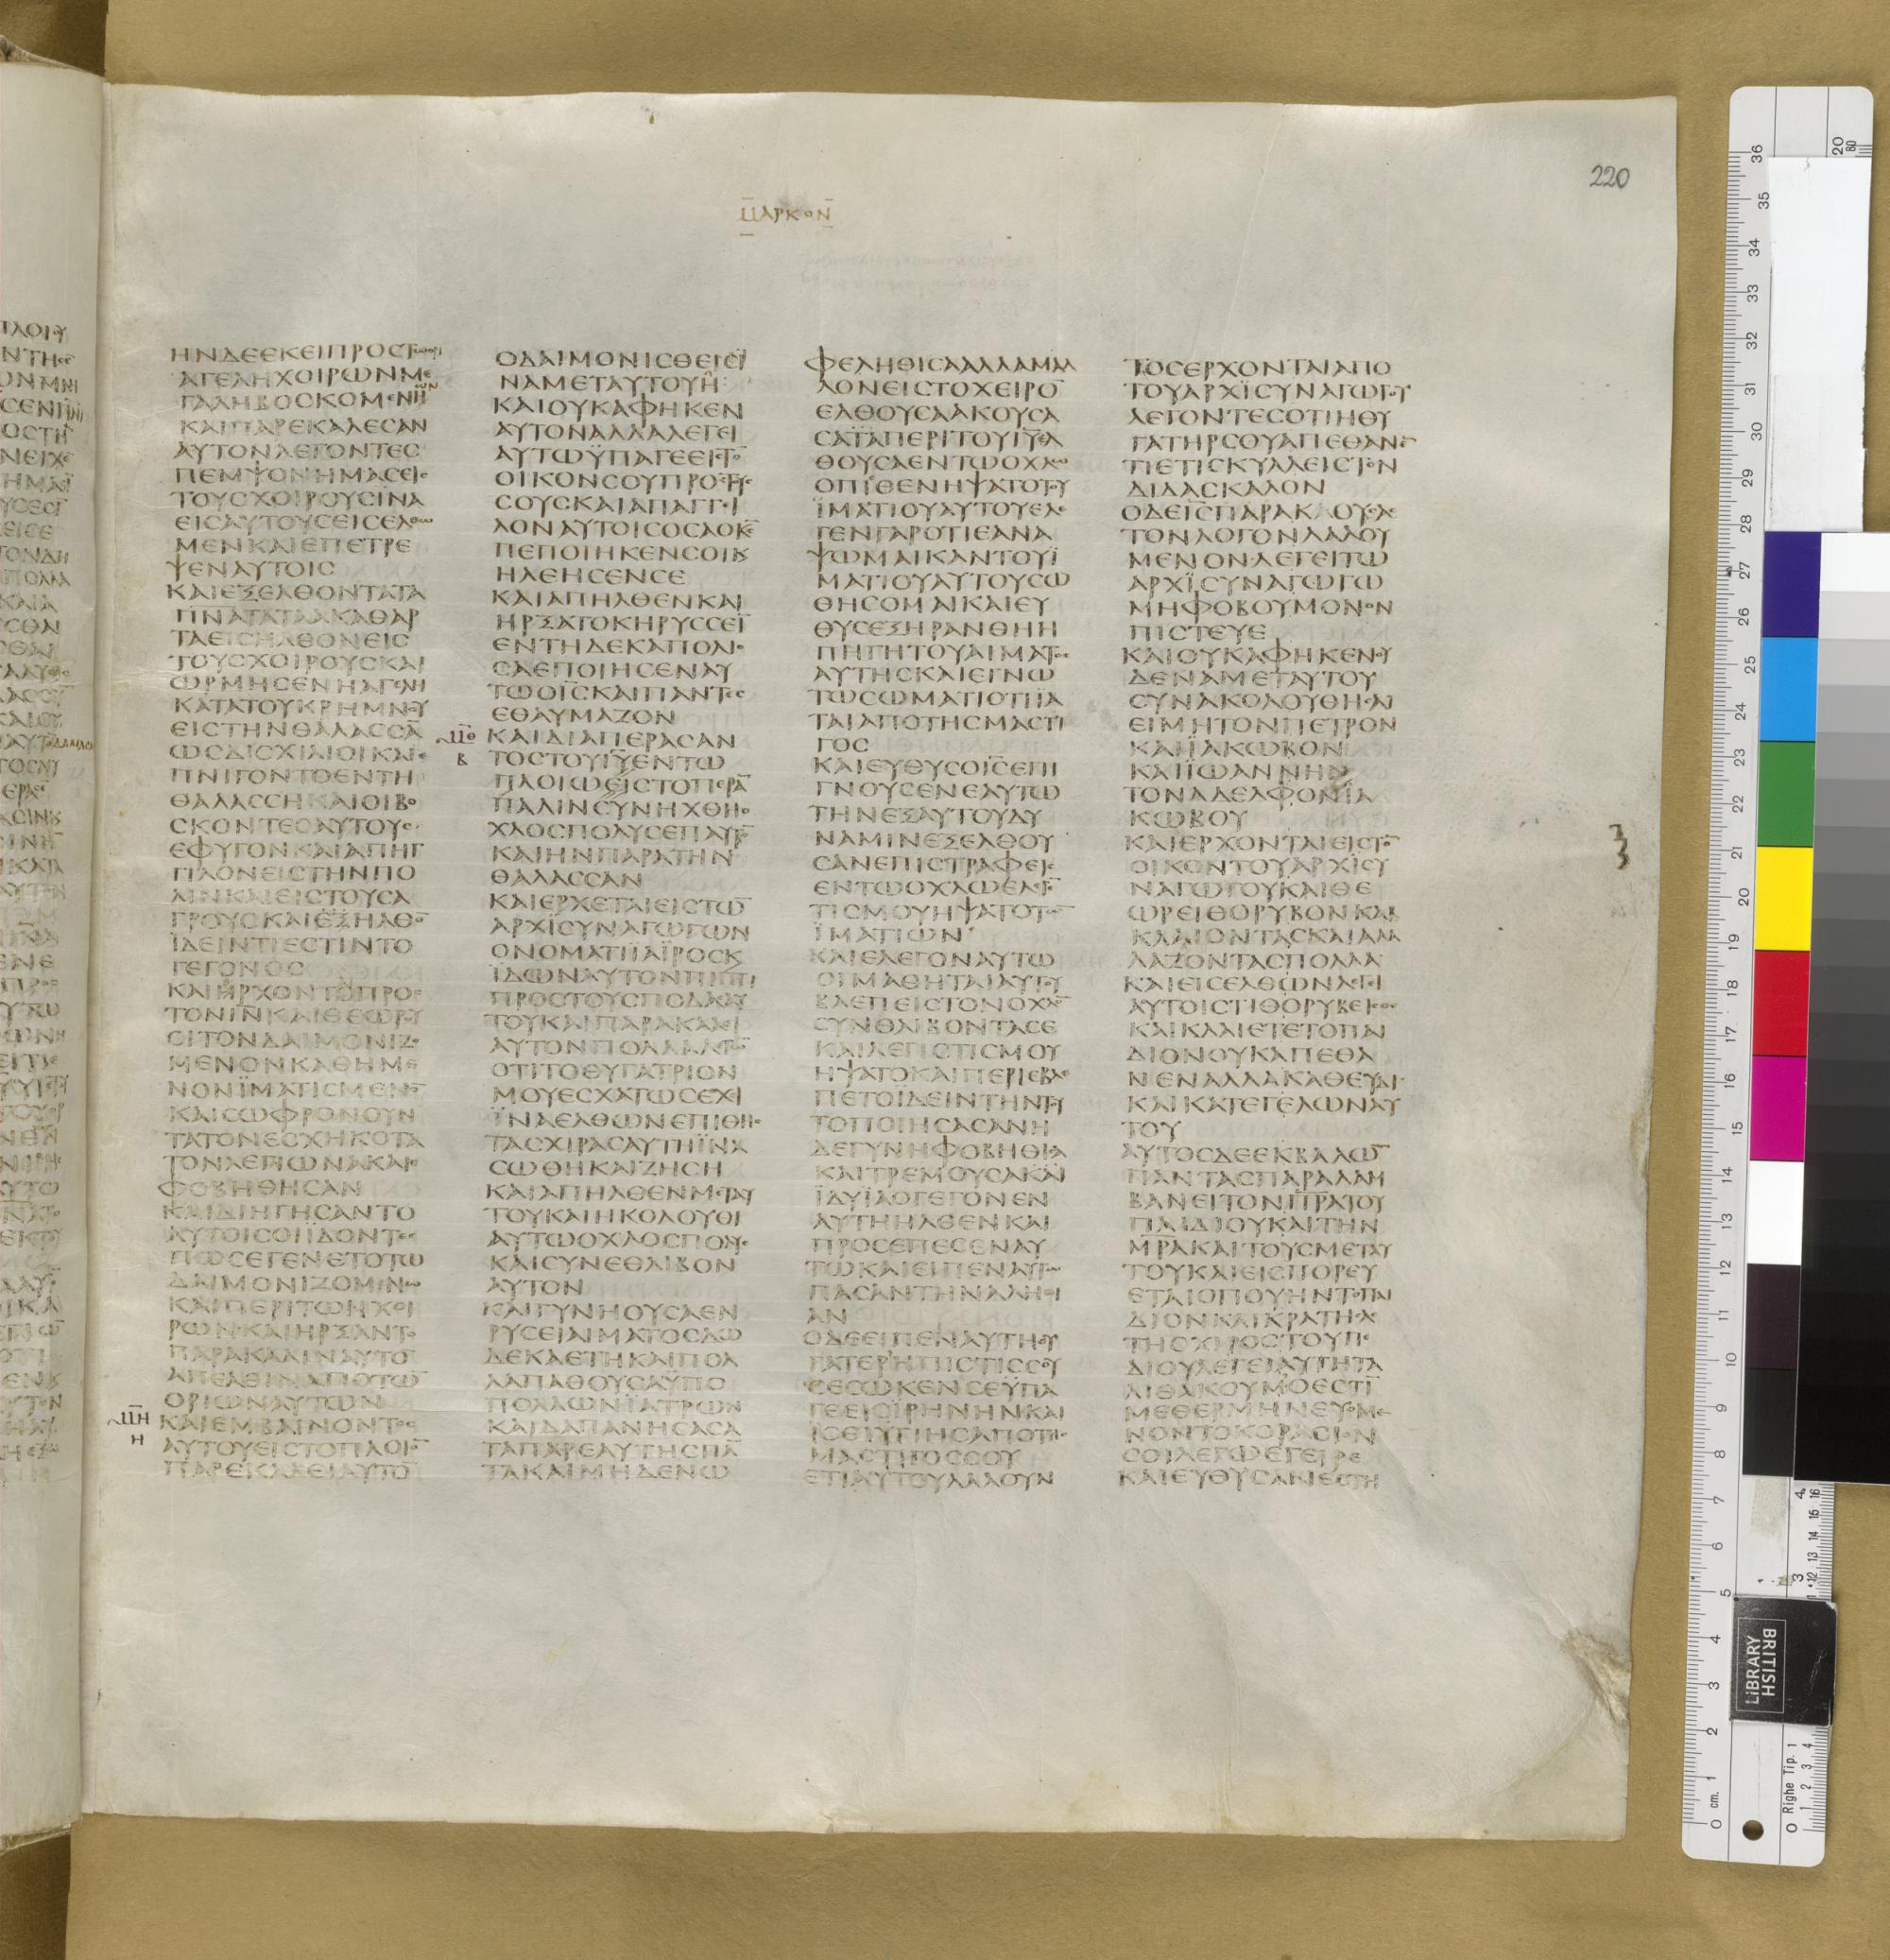 ΜΑΡΚΟΝ
220
ΗΝΔΕΕΚΕΙΠΡΟΣΤΩΟΡΙ
ΑΓΕΛΗΧΟΙΡΩΝΜΕ
ΓΑΛΗΒΟΣΚΟΜΕΝΗ
ΚΑΙΠΑΡΕΚΑΛΕΣΑΝ
ΑΥΤΟΝΛΕΓΟΝΤΕΣ
ΠΕΜΨΟΝΗΜΑΣΕΙΣ
ΤΟΥΣΧΟΙΡΟΥΣΪΝΑ
ΕΙΣΑΥΤΟΥΣΕΙΣΕΛΘΩ
ΜΕΝΚΑΙΕΠΕΤΡΕ
ΨΕΝΑΥΤΟΙΣ
ΚΑΙΕΞΕΛΘΟΝΤΑΤΑ
ΠΝΑΤΑΤΑΑΚΑΘΑΡ
ΤΑΕΙΣΗΛΘΟΝΕΙΣ
ΤΟΥΣΧΟΙΡΟΥΣΚΑΙ
ΩΡΜΗΣΕΝΗΑΓΕΛΗ
ΚΑΤΑΤΟΥΚΡΗΜΝΟΥ
ΕΙΣΤΗΝΘΑΛΑΣΣᾹ
ΩΣΔΙΣΧΙΛΙΟΙΚΑΙΕ
ΠΝΙΓΟΝΤΟΕΝΤΗ
ΘΑΛΑΣΣΗΚΑΙΟΙΒΟ
ΣΚΟΝΤΕΣΑΥΤΟΥΣ
ΕΦΥΓΟΝΚΑΙΑΠΗΓ
ΓΙΛΟΝΕΙΣΤΗΝΠΟ
ΛΙΝΚΑΙΕΙΣΤΟΥΣΑ
ΓΡΟΥΣΚΑΙΕΞΗΛΘΟ̄
ΪΔΕΙΝΤΙΕΣΤΙΝΤΟ
ΓΕΓΟΝΟΣ
ΚΑΙΗΡΧΟΝΤΟΠΡΟΣ
ΤΟΝῙΝ̄ΚΑΙΘΕΩΡΟΥ
ΣΙΤΟΝΔΑΙΜΟΝΙΖΟ
ΜΕΝΟΝΚΑΘΗΜΕ
ΝΟΝΪΜΑΤΙΣΜΕΝΟ̄
ΚΑΙΣΩΦΡΟΝΟΥΝ
ΤΑΤΟΝΕΣΧΗΚΟΤΑ
ΤΟΝΛΕΓΙΩΝΑΚΑΙΕ
ΦΟΒΗΘΗΣΑΝ
ΚΑΙΔΙΗΓΗΣΑΝΤΟ
ΑΥΤΟΙΣΟΙΪΔΟΝΤΕΣ
ΠΩΣΕΓΕΝΕΤΟΤΩ
ΔΑΙΜΟΝΙΖΟΜΕΝΩ
ΚΑΙΠΕΡΙΤΩΝΧΟΙ
ΡΩΝΚΑΙΗΡΞΑΝΤΟ
ΠΑΡΑΚΑΛΙΝΑΥΤΟ̄
ΑΠΕΛΘΙΝΑΠΟΤΩ̄
ΟΡΙΩΝΑΥΤΩΝ
ΜΗ
Η
ΚΑΙΕΜΒΑΙΝΟΝΤΟΣ
ΑΥΤΟΥΕΙΣΤΟΠΛΟΙΟ̄
ΠΑΡΕΚΑΛΕΙΑΥΤΟ̄
ΟΔΑΙΜΟΝΙΣΘΕΙΣΪ
ΝΑΜΕΤΑΥΤΟΥΗ
ΚΑΙΟΥΚΑΦΗΚΕΝ
ΑΥΤΟΝΑΛΛΑΛΕΓΕΙ
ΑΥΤΩΫΠΑΓΕΕΙΣΤΟ̄
ΟΙΚΟΝΣΟΥΠΡΟΣΤΟΥΣ
ΣΟΥΣΚΑΙΑΠΑΓΓΙ
ΛΟΝΑΥΤΟΙΣΟΣΑΟΚ̄Σ̄
ΠΕΠΟΙΗΚΕΝΣΟΙΚ
ΗΛΕΗΣΕΝΣΕ
ΚΑΙΑΠΗΛΘΕΝΚΑΙ
ΗΡΞΑΤΟΚΗΡΥΣΣΕῙ
ΕΝΤΗΔΕΚΑΠΟΛΙΟ
ΣΑΕΠΟΙΗΣΕΝΑΥ
ΤΩΟῙΣ̄ΚΑΙΠΑΝΤΕΣ
ΕΘΑΥΜΑΖΟΝ
ΜΘ
Β
ΚΑΙΔΙΑΠΕΡΑΣΑΝ
ΤΟΣΤΟΥῙῩ̄ΕΝΤΩ
ΠΛΟΙΩΕΙΣΤΟΠΕΡᾹ
ΠΑΛΙΝΣΥΝΗΧΘΗΟ
ΧΛΟΣΠΟΛΥΣΕΠΑΥΤΟ̄
ΚΑΙΗΝΠΑΡΑΤΗΝ
ΘΑΛΑΣΣΑΝ
ΚΑΙΕΡΧΕΤΑΙΕΙΣΤΩ̄
ΑΡΧΪΣΥΝΑΓΩΓΩΝ
ΟΝΟΜΑΤΙΪΑΪΡΟΣΚ
ΪΔΩΝΑΥΤΟΝΠΙΠΤΙ
ΠΡΟΣΤΟΥΣΠΟΔΑΣΑΥ
ΤΟΥΚΑΙΠΑΡΑΚΑΛΕΙ
ΑΥΤΟΝΠΟΛΛΑΛΕΓΩ̄
ΟΤΙΤΟΘΥΓΑΤΡΙΟΝ
ΜΟΥΕΣΧΑΤΩΣΕΧΙ
ΪΝΑΕΛΘΩΝΕΠΙΘΗΣ
ΤΑΣΧΙΡΑΣΑΥΤΗΪΝΑ
ΣΩΘΗΚΑΙΖΗΣΗ
ΚΑΙΑΠΗΛΘΕΝΜΕΤΑΥ
ΤΟΥΚΑΙΗΚΟΛΟΥΘΙ
ΑΥΤΩΟΧΛΟΣΠΟΛΥΣ
ΚΑΙΣΥΝΕΘΛΙΒΟΝ
ΑΥΤΟΝ
ΚΑΙΓΥΝΗΟΥΣΑΕΝ
ΡΥΣΕΙΑΙΜΑΤΟΣΔΩ
ΔΕΚΑΕΤΗΚΑΙΠΟΛ
ΛΑΠΑΘΟΥΣΑΫΠΟ
ΠΟΛΛΩΝΪΑΤΡΩΝ
ΚΑΙΔΑΠΑΝΗΣΑΣΑ
ΤΑΠΑΡΕΑΥΤΗΣΠᾹ
ΤΑΚΑΙΜΗΔΕΝΩ
ΦΕΛΗΘΙΣΑΑΛΛΑΜΑΛ
ΛΟΝΕΙΣΤΟΧΕΙΡΟ̄
ΕΛΘΟΥΣΑΑΚΟΥΣΑ
ΣΑΤΑΠΕΡΙΤΟΥῙῩ̄ΕΛ
ΘΟΥΣΑΕΝΤΩΟΧΛΩ
ΟΠΙΘΕΝΗΨΑΤΟΤΟΥ
ΪΜΑΤΙΟΥΑΥΤΟΥΕΛΕ
ΓΕΝΓΑΡΟΤΙΕΑΝΑ
ΨΩΜΑΙΚΑΝΤΟΥΪ
ΜΑΤΙΟΥΑΥΤΟΥΣΩ
ΘΗΣΟΜΑΙΚΑΙΕΥ
ΘΥΣΕΞΗΡΑΝΘΗΗ
ΠΗΓΗΤΟΥΑΙΜΑΤΟΣ
ΑΥΤΗΣΚΑΙΕΓΝΩ
ΤΩΣΩΜΑΤΙΟΤΙΪΑ
ΤΑΙΑΠΟΤΗΣΜΑΣΤΙ
ΓΟΣ
ΚΑΙΕΥΘΥΣΟῙΣ̄ΕΠΙ
ΓΝΟΥΣΕΝΕΑΥΤΩ
ΤΗΝΕΞΑΥΤΟΥΔΥ
ΝΑΜΙΝΕΞΕΛΘΟΥ
ΣΑΝΕΠΙΣΤΡΑΦΕΙΣ
ΕΝΤΩΟΧΛΩΕΛΕΓΕ̄
ΤΙΣΜΟΥΗΨΑΤΟΤΩ̄
ΪΜΑΤΙΩΝ
ΚΑΙΕΛΕΓΟΝΑΥΤΩ
ΟΙΜΑΘΗΤΑΙΑΥΤΟΥ
ΒΛΕΠΕΙΣΤΟΝΟΧΛΟ̄
ΣΥΝΘΛΙΒΟΝΤΑΣΕ
ΚΑΙΛΕΓΙΣΤΙΣΜΟΥ
ΗΨΑΤΟΚΑΙΠΕΡΙΕΒΛΕ
ΠΕΤΟΪΔΕΙΝΤΗΝΤΟΥ
ΤΟΠΟΙΗΣΑΣΑΝΗ
ΔΕΓΥΝΗΦΟΒΗΘΙΣΑ
ΚΑΙΤΡΕΜΟΥΣΑΚΑΙ
ΪΔΥΪΑΟΓΕΓΟΝΕΝ
ΑΥΤΗΗΛΘΕΝΚΑΙ
ΠΡΟΣΕΠΕΣΕΝΑΥ
ΤΩΚΑΙΕΙΠΕΝΑΥΤΩ
ΠΑΣΑΝΤΗΝΑΛΗΘΙ
ΑΝ
ΟΔΕΕΙΠΕΝΑΥΤΗΘΥ
ΓΑΤΕΡΗΠΙΣΤΙΣΣΟΥ
ΣΕΣΩΚΕΝΣΕΫΠΑ
ΓΕΕΙΣΪΡΗΝΗΝΚΑΙ
ΪΣΘΙΥΓΙΗΣΑΠΟΤΗΣ
ΜΑΣΤΙΓΟΣΣΟΥ
ΕΤΙΑΥΤΟΥΛΑΛΟΥΝ
ΤΟΣΕΡΧΟΝΤΑΙΑΠΟ
ΤΟΥΑΡΧΪΣΥΝΑΓΩΓΟΥ
ΛΕΓΟΝΤΕΣΟΤΙΗΘΥ
ΓΑΤΗΡΣΟΥΑΠΕΘΑΝΕ̄
ΤΙΕΤΙΣΚΥΛΛΕΙΣΤΟΝ
ΔΙΔΑΣΚΑΛΟΝ
ΟΔΕῙΣ̄ΠΑΡΑΚΟΥΣΑΣ
ΤΟΝΛΟΓΟΝΛΑΛΟΥ
ΜΕΝΟΝΛΕΓΕΙΤΩ
ΑΡΧΪΣΥΝΑΓΩΓΩ
ΜΗΦΟΒΟΥΜΟΝΟΝ
ΠΙΣΤΕΥΕ
ΚΑΙΟΥΚΑΦΗΚΕΝΟΥ
ΔΕΝΑΜΕΤΑΥΤΟΥ
ΣΥΝΑΚΟΛΟΥΘΗΣΑΙ
ΕΙΜΗΤΟΝΠΕΤΡΟΝ
ΚΑΙΪΑΚΩΒΟΝ
ΚΑΙΪΩΑΝΝΗΝ
ΤΟΝΑΔΕΛΦΟΝΪΑ
ΚΩΒΟΥ
ΚΑΙΕΡΧΟΝΤΑΙΕΙΣΤΟ̄
ΟΙΚΟΝΤΟΥΑΡΧΪΣΥ
ΝΑΓΩΓΟΥΚΑΙΘΕ
ΩΡΕΙΘΟΡΥΒΟΝΚΑΙ
ΚΛΑΙΟΝΤΑΣΚΑΙΑΛΑ
ΛΑΖΟΝΤΑΣΠΟΛΛΑ
ΚΑΙΕΙΣΕΛΘΩΝΛΕΓΙ
ΑΥΤΟΙΣΤΙΘΟΡΥΒΕΙΣΘΕ
ΚΑΙΚΛΑΙΕΤΕΤΟΠΑΙ
ΔΙΟΝΟΥΚΑΠΕΘΑ
ΝΕΝΑΛΛΑΚΑΘΕΥΔΙ
ΚΑΙΚΑΤΕΓΕΛΩΝΑΥ
ΤΟΥ
ΑΥΤΟΣΔΕΕΚΒΑΛΩ̄
ΠΑΝΤΑΣΠΑΡΑΛΑΜ
ΒΑΝΕΙΤΟΝΠ̄Ρ̄ᾹΤΟΥ
ΠΑΙΔΙΟΥΚΑΙΤΗΝ
Μ̄Ρ̄ᾹΚΑΙΤΟΥΣΜΕΤΑΥ
ΤΟΥΚΑΙΕΙΣΠΟΡΕΥ
ΕΤΑΙΟΠΟΥΗΝΤΟΠΑΙ
ΔΙΟΝΚΑΙΚΡΑΤΗΣΑΣ
ΤΗΣΧΙΡΟΣΤΟΥΠΕ
ΔΙΟΥΛΕΓΕΙΑΥΤΗΤΑ
ΛΙΘΑΚΟΥΜΟΕΣΤῙ
ΜΕΘΕΡΜΗΝΕΥΟΜΕ
ΝΟΝΤΟΚΟΡΑΣΙΟΝ
ΣΟΙΛΕΓΩΕΓΕΙΡΕ
ΚΑΙΕΥΘΥΣΑΝΕΣΤΗ
BRITISH
LIBRARY
Righe Tip. 1